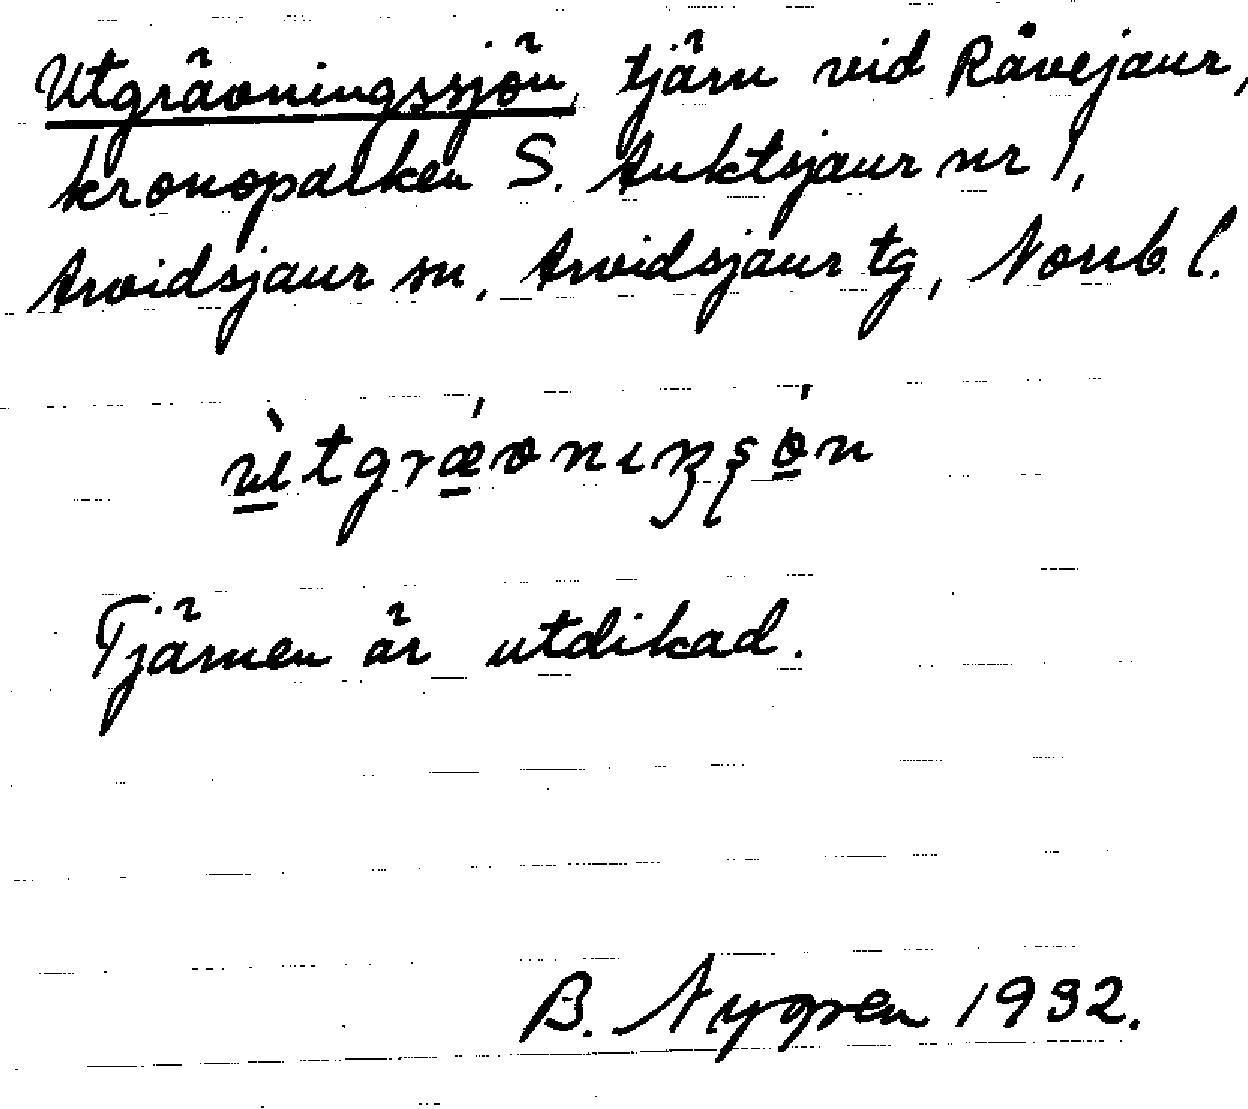 Utgrävningssjön, tjärn vid Råvejaur,
kronoparken S. Auktsjaur nr 1,
Arvidsjaur sn, Arvidsjaur tg, Norrb. l.
ùtgrǽvnıŋʂǿn
Tjärnen är utdikad.
B. Nygren 1932.